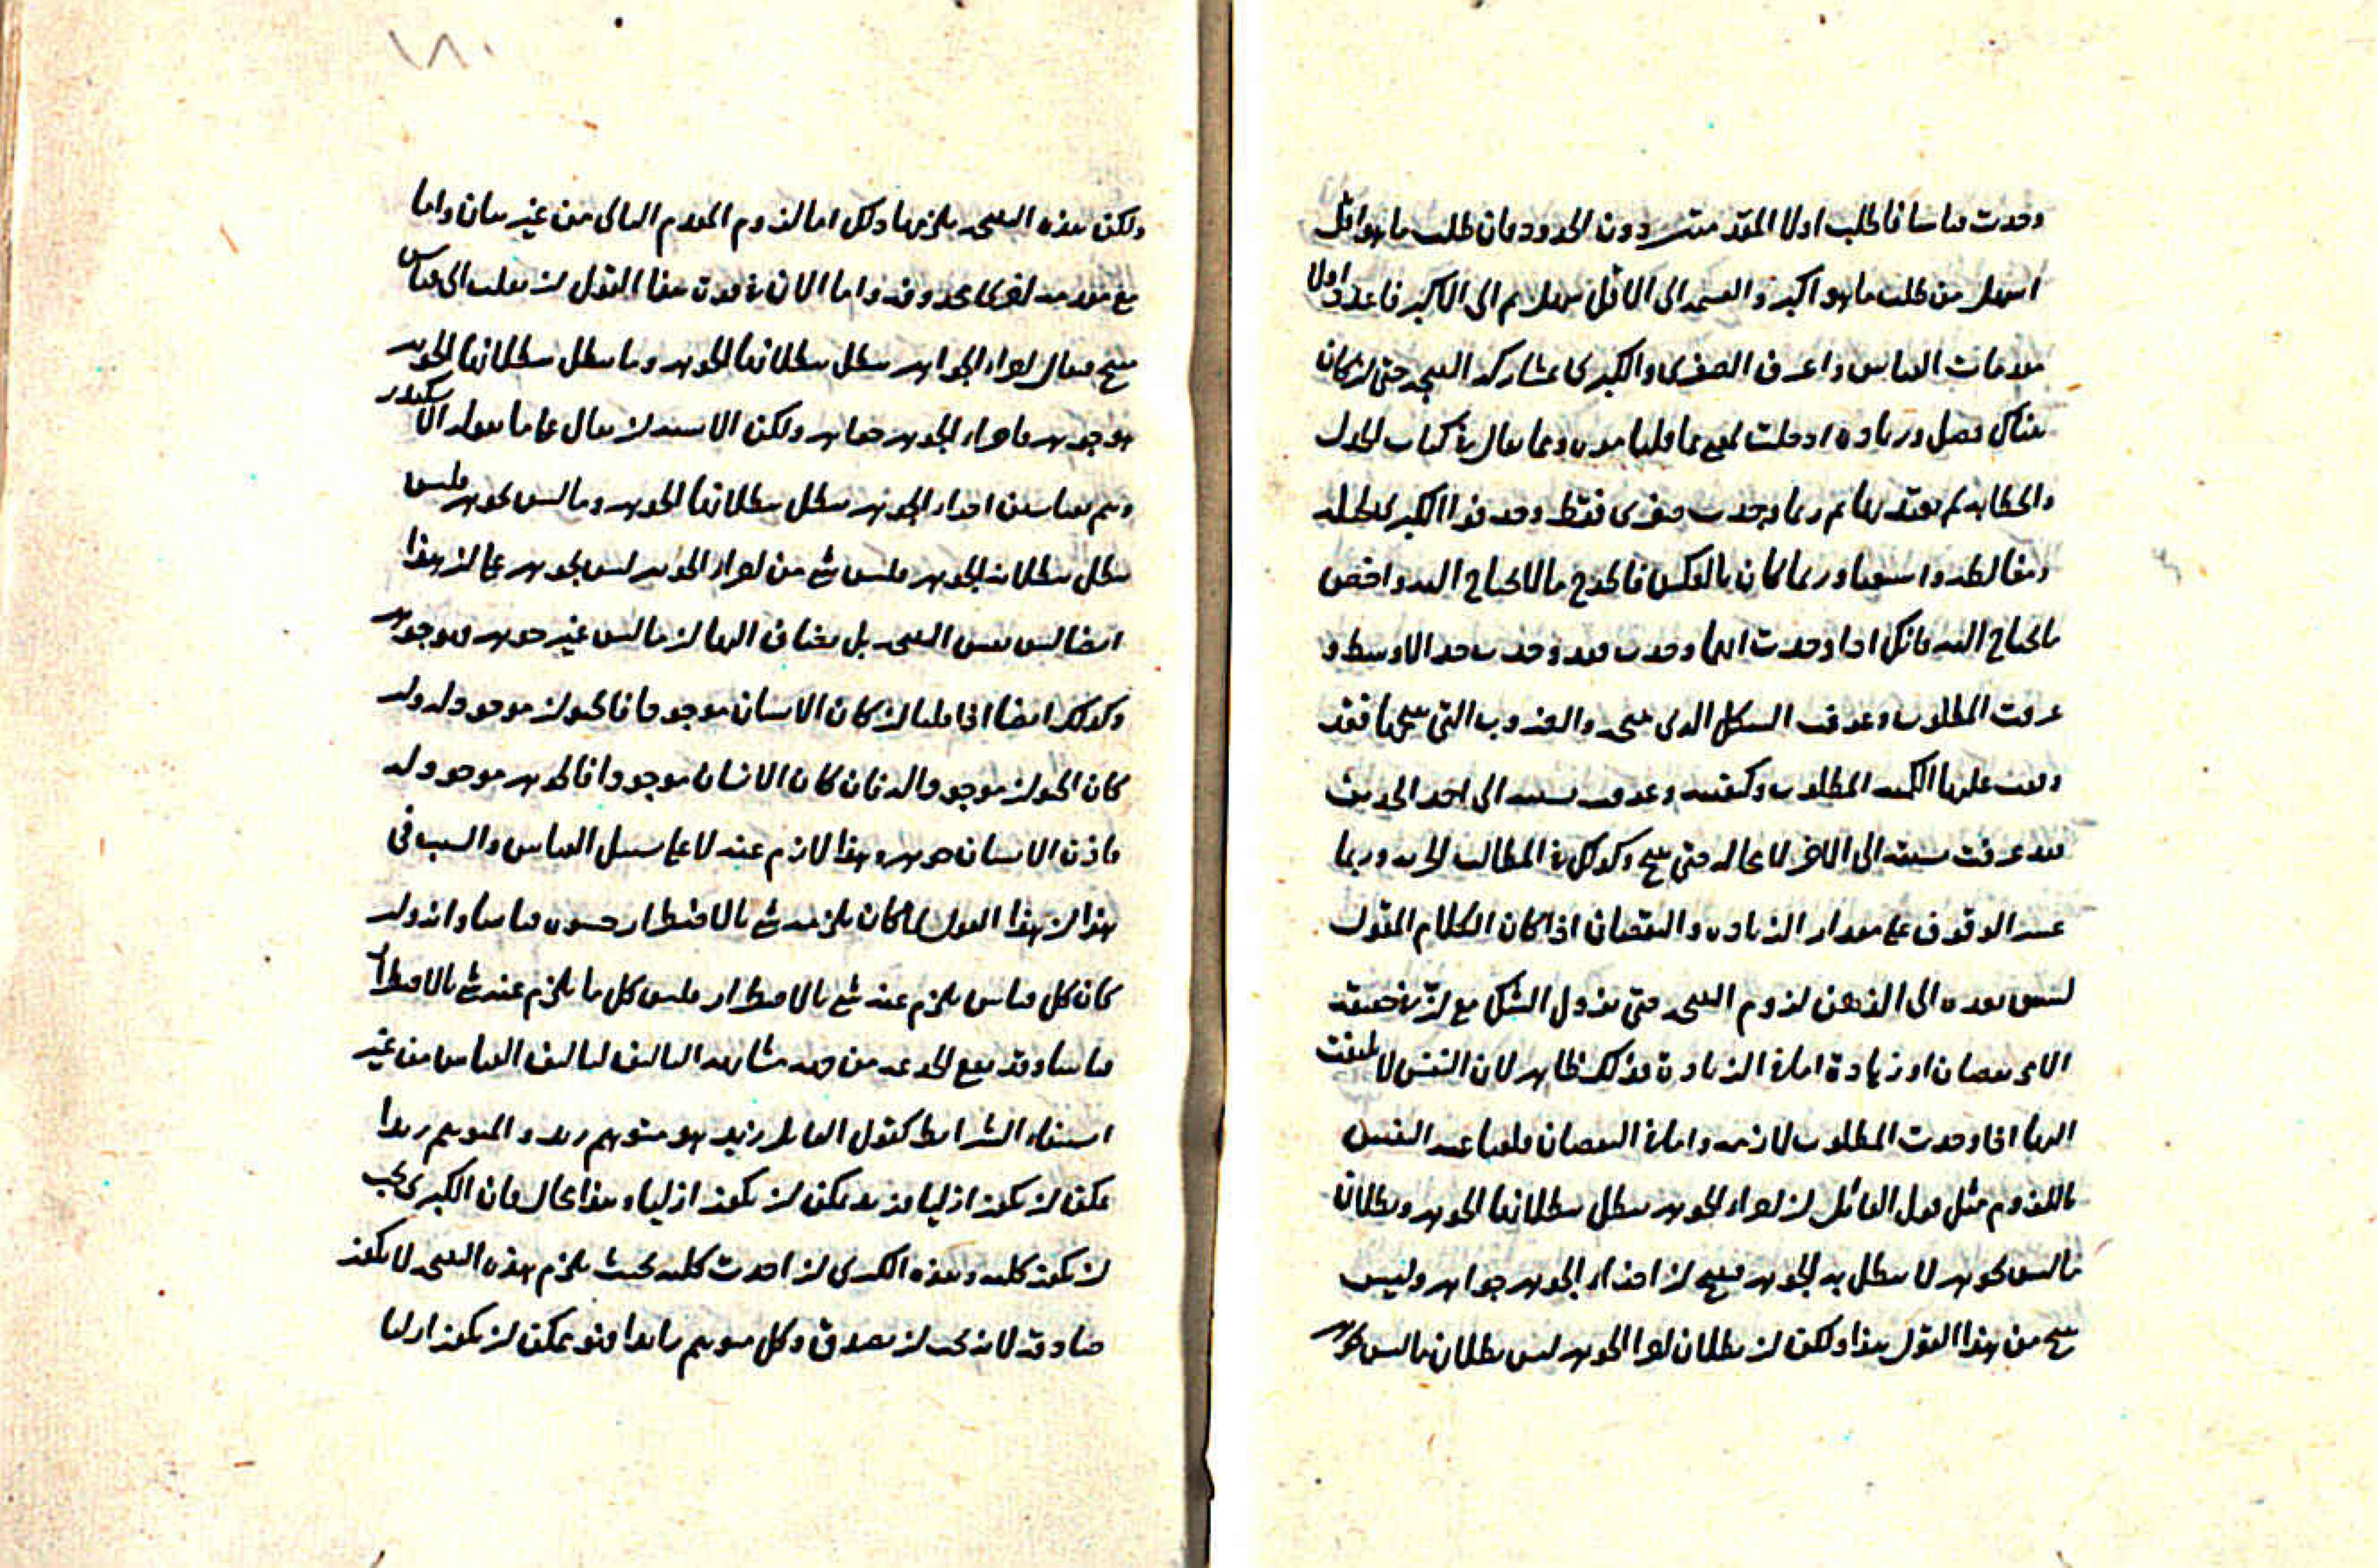 وجدت قياسا فاطلب اولا المقدمتين دون الحدود فان طلب ما هو اقل
اسهل من طلب ما هو اكثر والقسمة الى الاقل اسهل ثم الى الاكثر فاعدد اولا
مقدمات القياس واعرف الصغرى والكبرى بمشاركة النتيجة حتى ان كان
هناك فضل وزيادة ادخلت لمعنى مما قلناه وما يقال في كتاب الجدل
والخطابة لم يعتد بها ثم ربما وجدت صغرى فقط وحذفوا الكبرى لحيلة
ومغالطة واستغناء وربما كان بالعكس فاطرح ما لا يحتاج اليه واخص
ما يحتاج اليه فانك اذا وجدت ايها وجدت فقد وجدت حد الاوسط و
عرفت المطلوب وعرفت الشكل الذي ينتجه والضروب التي ينتجها فقد
وقفت عليها الكمية المطلوب وكيفيته وعرفت نسبته الى احد الحدين
فقد عرفت نسبته الى الاخر لا محالة حتى ينتج وكذلك في المطالب الجزئية وربما
عسر الوقوف على مقدار الزيادة والنقصان اذا كان الكلام المقول
يسبق بعده الى الذهن لزوم النتيجة حتى يزول الشك مع ان في حقيقته
الاى نقصان او زيادة اما في الزيادة فذلك ظاهر لان النفس لا تلتفت
اليها اذا وجدت المطلوب لازمه واما في النقصان فلقناعة النفس
باللزوم مثل قول القائل ان اجزاء الجوهر يبطل ببطلانها الجوهر وبطلان
ما ليس بجوهر لا يبطل به الجوهر فينتج ان اجزاء الجوهر جواهر وليس
ينتج من هذا القول هذا ولكن ان بطلان اجزا الجوهر ليس بطلان ما ليس بجوهر
١٨٠
ولكن هذه النتيجة يلزمها ذلك اما لزوم المقدم التالي من غير بيان واما
مع مقدمة اخرى محذوفة واما الان في قوة هذا القول ان يقلب الى قياس
ينتج فيقال اجزاء الجواهر يبطل ببطلانها الجوهر وما يبطل ببطلانها الجوهر
هو جوهر فاجزاء الجوهر جواهر ولكن الاشبه ان يقال على ما يقوله الاسكندر
وهم بقياسين اجزاء الجوهر يبطل ببطلانها الجوهر وما ليس بجوهر فليس
يبطل ببطلانه الجوهر فليس شئ من اجزاء الجوهر ليس بجوهر على ان هذا
ايضا ليس نفس النتيجة بل يضاف اليها ان ما ليس غير جوهر فهو جوهر
وكذلك ايضا اذا قلنا ان كان الانسان موجودا فالحيوان موجود له وان
كان الحيوان موجودا له فان كان الانسان موجودا فالجوهر موجود له
فاذن الانسان جوهر وهذا لازم عنه لا على سبيل القياس والسبب في
هذا ان هذا القول لما كان يلزمه شئ بالاضطرار حسبوه قياسا وانه وان
كان كل قياس يلزم عنه شئ بالاضطرار فليس كل ما يلزم عنه شئ بالاضطرار
قياسا وقد يقع الخدعة من جهة مشابهة التاليف لتاليف القياس من غير
استيفاء الشرايط كقول القايل زيد هو متوهم زيد والمتوهم زيدا
يمكن ان يكون ازليا فزيد يمكن ان يكون ازليا وهذا محال فان الكبرى يجب
ان يكون كلية وهذه الكبرى ان اخذت كلية بحيث يلزم هذه النتيجة لا يكون
صادقة لانه يجب ان يصدق وكل متوهم زيدا فهو يمكن ان يكون ازليا